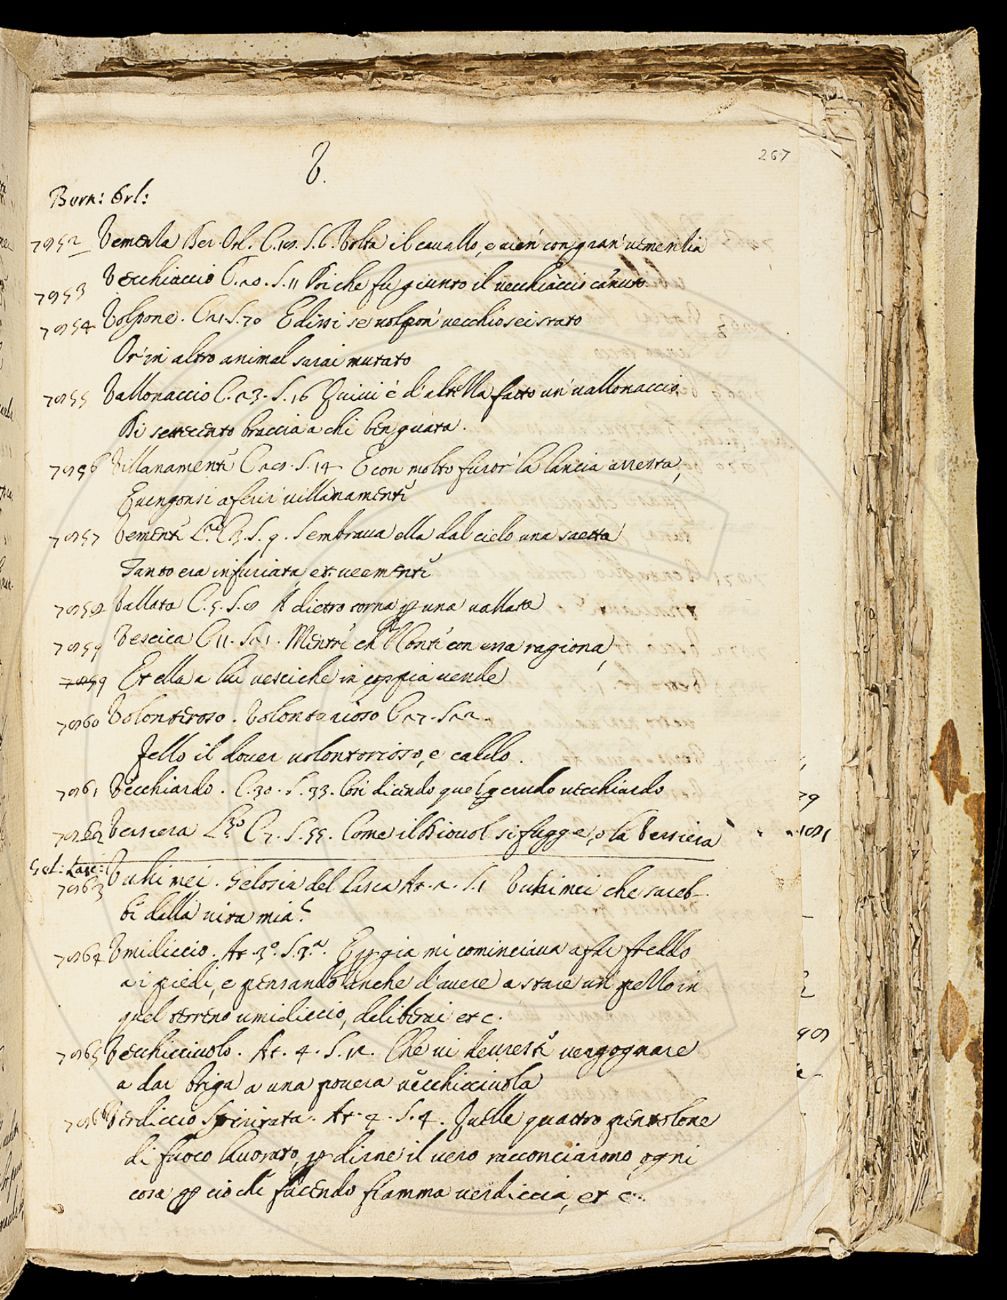 V.
267
Bern: Orl:
7952 Vemenza Ber. Orl. C. 19. S. 6. Volta il cavallo, e vien' con gran' vemenzia
7953 Vecchiaccio C. 20. S. 11 Poi che fu giunto il vecchiaccio canuto
7954 Volpone. C. 21. S. 70 E dissi se volpon' vecchio sei stato
Or' in altro animal sarai mutato
7955 Vallonaccio C. 23. S. 16 Quivi è d'altella fatto un' vallonaccio
Di settecento braccia a chi ben guata.
7956 Villanamente C. 29. S. 14 E con molto furor' la lancia arresta,
E vengonsi a ferir villanamente
7957 Vemente L.º C. 3. S. 9. Sembrava ella dal cielo una saetta
Tanto era infuriata, et veemente
7958 Vallata C. 5. S. 8 A dietro torna p una vallata
7959 Vescica C. 11. S. 21. Mentre ch'el Conte con essa ragiona,
7959 Et ella a lui vesciche in coppia vende
7960 Volonteroso. Volontarioso C. 27. S. 22.
Fello il dover volontorioso, e caldo.
7961 Vecchiardo. C. 30. S. 33. Così dicendo quel crudo vecchiardo
7962 Versiera L.º 3º C. 7. S. 55. Come il Diavol si fugge, o la Versiera
Gel. Lasc:
7963 Vuhi mei. Gelosia del Lasca At. 2. S. 1 Vuhi mei che sareb-
bi della vita mia?
7964 Umidiccio. At. 3º. S. 3ª. E poi mi cominciava a far freddo
ai piedi, e pensando anche d'avere a stare un pezzo in
quel terreno umidiccio, deliberai etc.
7965 Vecchicciuolo. At. 4. S. 12. Che vi devreste vergognare
a dar briga a una povera vecchicciuola
7966 Verdiccio Spiritata. At. 4. S. 4. Quelle quattro pentolone
di fuoco lavorato, p dirne il vero racconciarono ogni
cosa pp ciò che facendo fiamma verdiccia, et c.